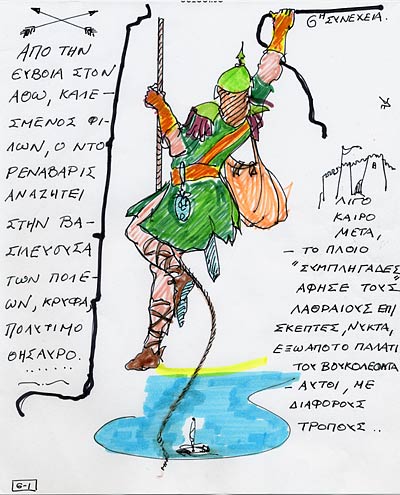 6η ΣΥΝΕΧΕΙΑ.
ΑΠΟ ΤΗΝ
ΕΥΒΟΙΑ ΣΤΟΝ
ΑΘΩ, ΚΑΛΕ-
ΣΜΕΝΟΣ ΦΙ-
ΛΩΝ, Ο ΝΤΟ
ΡΕΝΑΒΑΡΙΣ
ΑΝΑΖΗΤΕΙ
ΣΤΗΝ ΒΑ-
ΣΙΛΕΥΟΥΣΑ
ΤΩΝ ΠΟΛΕ-
ΩΝ, ΚΡΥΦΑ,
ΠΟΛΥΤΙΜΟ
ΘΗΣΑΥΡΟ......
ΛΙΓΟ
ΚΑΙΡΟ
ΜΕΤΑ,
- ΤΟ ΠΛΟΙΟ
"ΣΥΜΠΛΗΓΑΔΕΣ"
ΑΦΗΣΕ ΤΟΥΣ
ΛΑΘΡΑΙΟΥΣ ΕΠΙ
ΣΚΕΠΤΕΣ, ΝΥΚΤΑ,
ΕΞΩ ΑΠΟ ΤΟ ΠΑΛΑΤΙ
ΤΟΥ ΒΟΥΚΟΛΕΟΝΤΑ
- ΑΥΤΟΙ, ΜΕ
ΔΙΑΦΟΡΟΥΣ
ΤΡΟΠΟΥΣ..
6-1